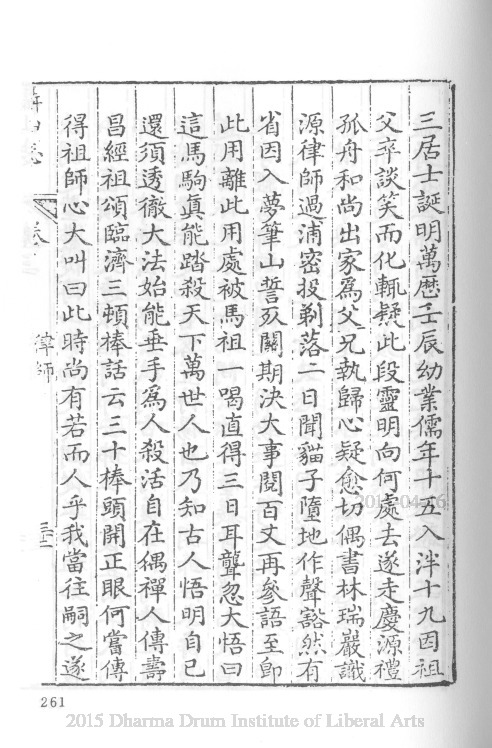 三居士誕明萬曆壬辰幼業儒年十五入泮十九因祖
父卒談笑而化輒疑此段靈明向何處去遂走慶源禮
孤舟和尚出家為父兄執歸心疑愈切偶書林瑞巖識
源律師過浦密投剃落二日聞貓子墮地作聲豁然有
省因入夢筆山誓死關期決大事閱百丈再參語至卽
此用離此用處被馬祖一喝直得三日耳聾忽大悟曰
這馬駒眞能踏殺天下萬世人也乃知古人悟明自己
還須透徹大法始能垂手為人殺活自在偶禪人傳壽
昌經祖頌臨濟三頓棒話云三十棒頭開正眼何嘗傳
得祖師心大叫曰此時尚有若而人乎我當往嗣之遂
律師
261
2015 Dharma Drum Institute of Liberal Arts